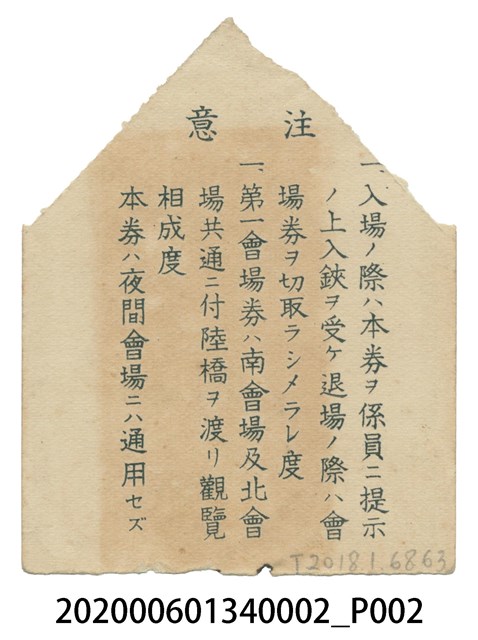 注意
一、入場ノ際ハ本券ヲ係員ニ提示
ノ上入鋏ヲ受ケ退場ノ際ハ會
場券ヲ切取ラシメラレ度
一、第一會場券ハ南會場及北會
場共通ニ付陸橋ヲ渡リ觀覽
相成度
本券ハ夜間會場ニハ通用セズ
T2018.1.6863
202000601340002_P002